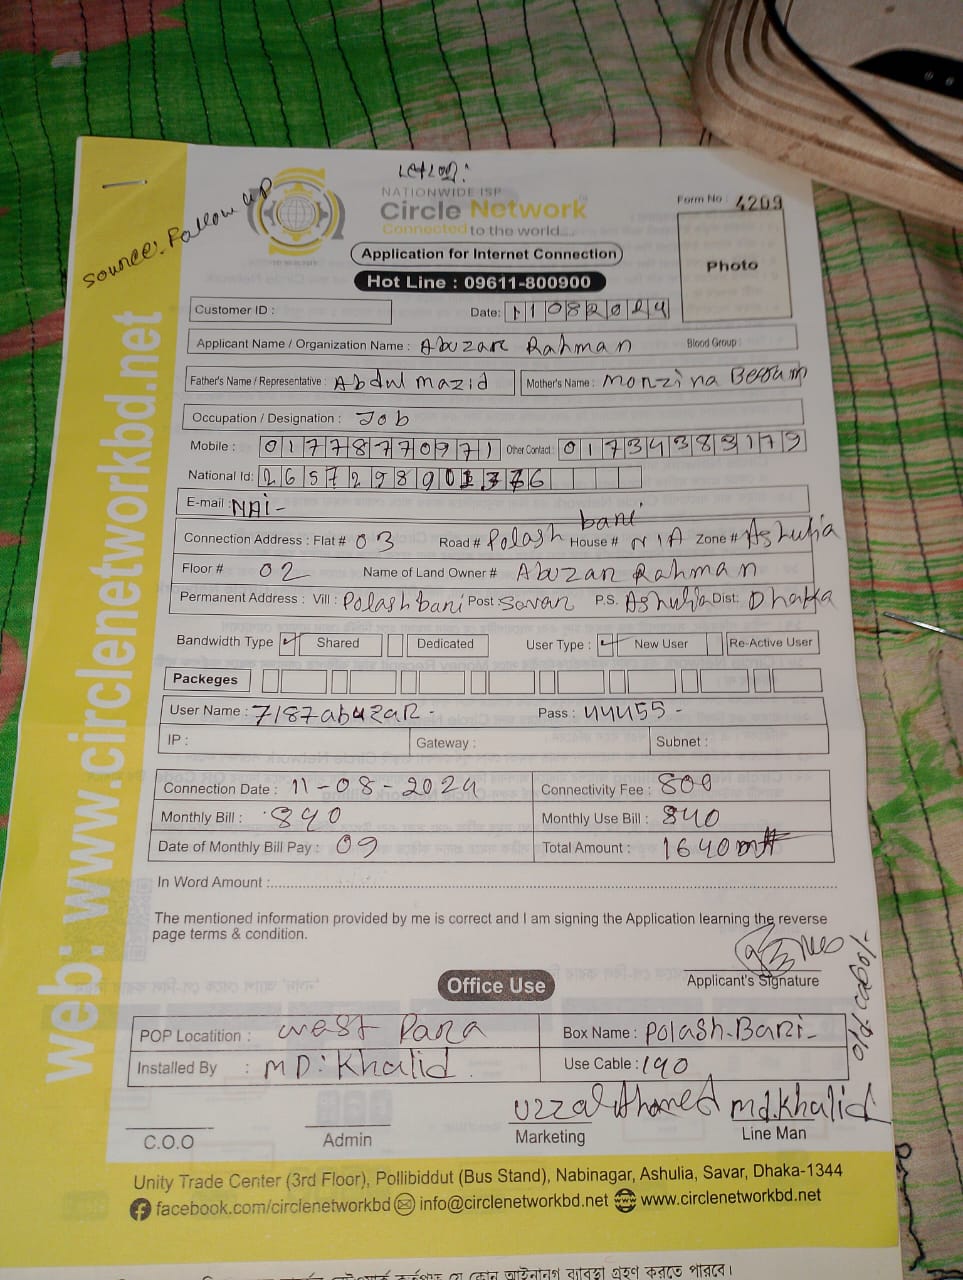 Source: Follow up
NATIONWIDE ISP
Circle Network
Connected to the world....
Form No : 4209
Application for Internet Connection
Photo
Hot Line : 09611-800900
Customer ID :
Date: 11082024
Applicant Name / Organization Name : Abuzar Rahman Blood Group :
Father's Name / Representative : Abdul mazid Mother's Name : Monzina Begum
Occupation / Designation : Job
Mobile : 01778770971 Other Contact : 01734383179
National Id:
E-mail : NAI-
Connection Address : Flat # 03 Road # Polash bari House # N/A Zone # Ashulia
Floor # 02 Name of Land Owner # Abuzar Rahman
Permanent Address : Vill : Polashbari Post Savar P.S. Ashulia Dist: Dhaka
Bandwidth Type ✓ Shared Dedicated User Type : ✓ New User Re-Active User
Packeges
User Name : 7187abuzar - Pass : 44455 -
IP : Gateway : Subnet :
Connection Date : 11-08-2024 Connectivity Fee : 800
Monthly Bill : 840 Monthly Use Bill : 840
Date of Monthly Bill Pay : 09 Total Amount : 1640
In Word Amount :
The mentioned information provided by me is correct and I am signing the Application learning the reverse
page terms & condition.
Applicant's Signature
Office Use
POP Locatition : West Para Box Name : Polash-Bari-
Installed By : MD: Khalid. Use Cable : 190
Uzzal Ahamed Md.Khalid
C.O.O Admin Marketing Line Man
Unity Trade Center (3rd Floor), Pollibiddut (Bus Stand), Nabinagar, Ashulia, Savar, Dhaka-1344
facebook.com/circlenetworkbd info@circlenetworkbd.net www.circlenetworkbd.net
web: www.circlenetworkbd.net
ব্যবস্থা গ্রহণ করতে পারবে।